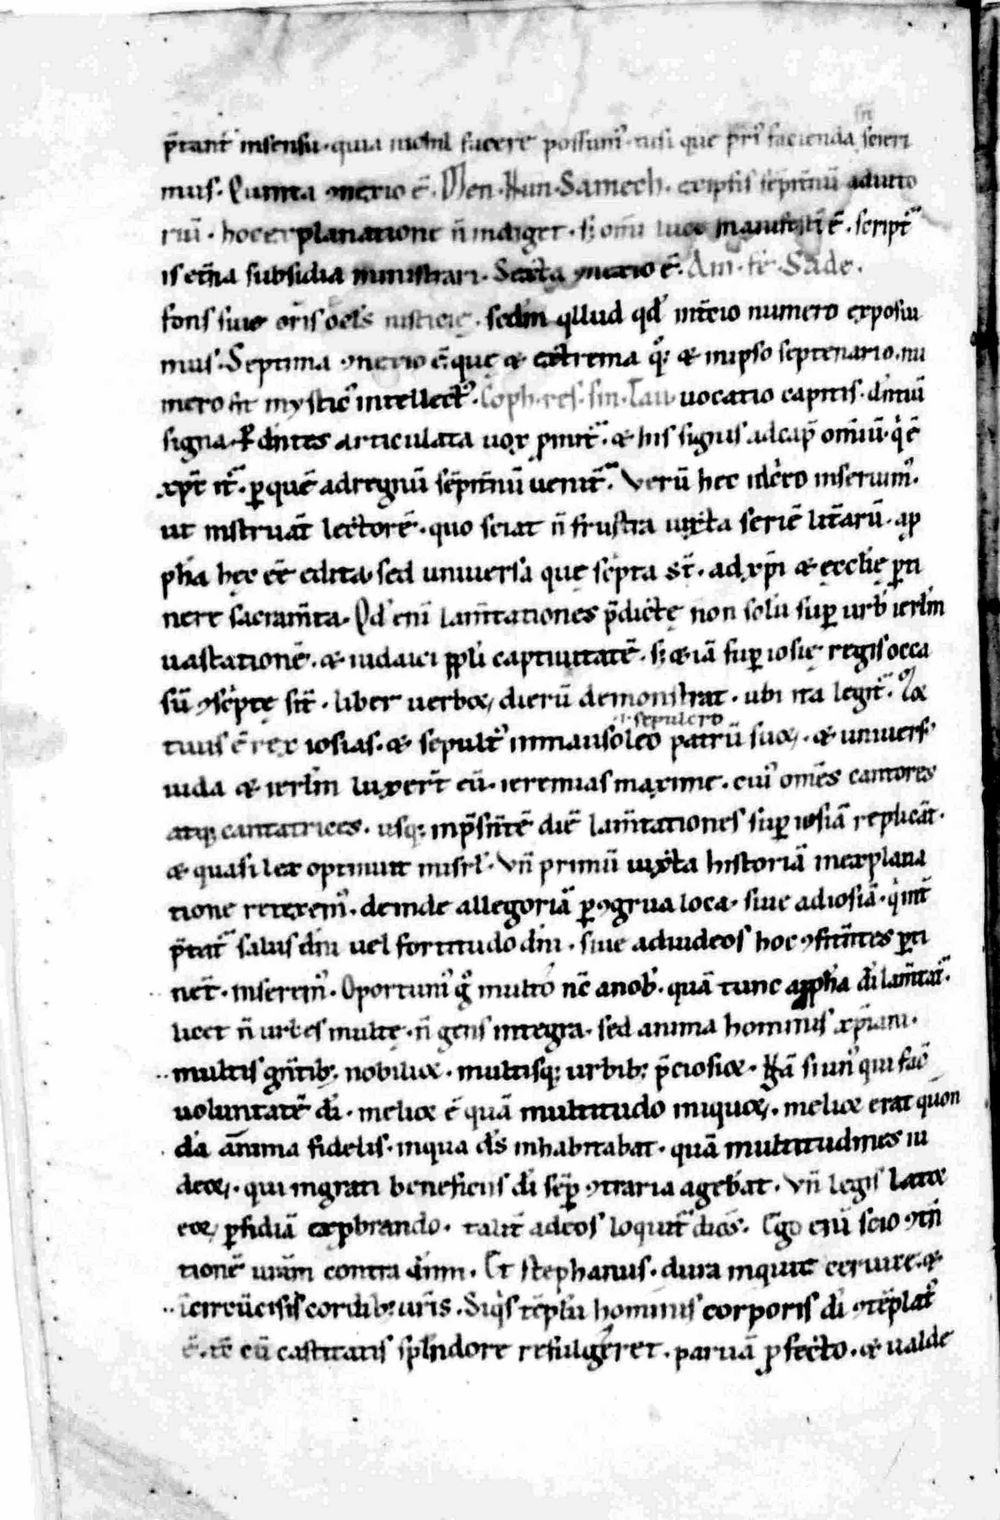 p̄tant᷑ in sensu · quia nichil facere possum᷒ · nisi que pri᷒ facienda scieri
mus · Quinta ꝯnexio ē · Men · Nun · Samech · ex ipsis sēp̄tnū adiuto
riū · hoc explanatione n̄ indiget · sꝫ om̄i luce manifestū ē · script᷑
is et̄na subsidia ministrari · Sexta ꝯnexio ē · Ain · fe · Sade ·
fons siue oris ocl̄s iusticie · sedm illud qd́ int̄io numero exposui
mus · Septima ꝯnexio ē · que ⁊ extrema q̊ꝫ ⁊ in ipso septenario · nu
mero sit mystic᷒ intellect᷒ · Coph · res · sin · Tau · uocatio capitis · dntiū
signa · Ꝑ dntes articulata uox ꝓmit᷑ · ⁊ his signis ad cap̄ om̄iū · q̇ ē
xp̄c it᷑ · ꝑ quē ad regnū sēp̄tnū uenit᷑ · Verū hec idcirco inseruim᷒ ·
ut instruāt lectorē · quo sciat n̄ frustra iuxta seriē lit̄arū · a ꝓ
ph̄a hęc eē edita · sed uniuersa que sc̄pta st̄ · ad xp̄i ⁊ ęcclię ꝑti
nere sacram̄ta · Qd́ eni lam̄tationes p̄dictę non solū suꝑ urb̄ ierl̄m
uastationē · ⁊ iudaici ppl̄i captiuitatē · sꝫ ⁊ iā suꝑ iosię regis occa
sū ꝯscp̄tę sīt · liber uerboꝝ dierū demonstrat · ubi ita legit᷑ · Moꝛ
tuus ē rex iosias · ⁊ sepult᷒ in mausoleo patrū suoꝝ · ⁊ uniuers᷒
.i. sepulcro
iuda ⁊ ierl̄m luxer̄t eū · ieremias maxime · cui᷒ om̄es cantores
atqꝫ cantatrices · usqꝫ in p̄sn̄tē diē lam̄tationes suꝑ iosiā replicāt ·
⁊ quasi lex optinuit in isrl̄ · Vn̄ primū iuxta historiā in explana
tione retexem᷒ · deinde allegoriā ꝑ ꝯgrua loca · siue ad iosiā · q̇ int̄
p̄tat᷑ salus dn̄i uel fortitudo dn̄i · siue ad iudeos hoc ꝯfitn̄tes ꝑti
net · inserem᷒ · Oportuni᷒ g̊ multo nc̄ a nob̄ · quā tunc a ꝓph̄a di lam̄tat᷑ ·
licet n̄ urbes multę · n̄ gens integra · sed anima hominis xp̄iani ·
multis gn̄tibꝫ nobilioꝛ · multisqꝫ urbibꝫ p̄ciosioꝛ · Nā si un᷒ qui fac̄
uoluntatē di · melioꝛ ē quā multitudo iniquoꝝ · melioꝛ erat quon
dā anima fidelis · in qua ds̄ inhabitabat · quā multitudines iu
deoꝝ · qui ingrati beneficiis di sēꝑ ꝯtraria agebāt · Vn̄ legis latoꝛ
eoꝝ ꝑfidiā exꝓbrando · talit᷑ ad eos loquit᷑ dicēs · Ego eni scio ꝯtn̄
tionē ur̄am contra dn̄m · Et stephanus · dura inquit ceruice · ⁊
ī circūcisis cordibꝫ ur̄is · Siq̇s tēplū hominis corporis di ꝯtēplat᷑
ē · tē cū castitatis splendore refulgeret · paruā ꝓfecto · ⁊ ualde